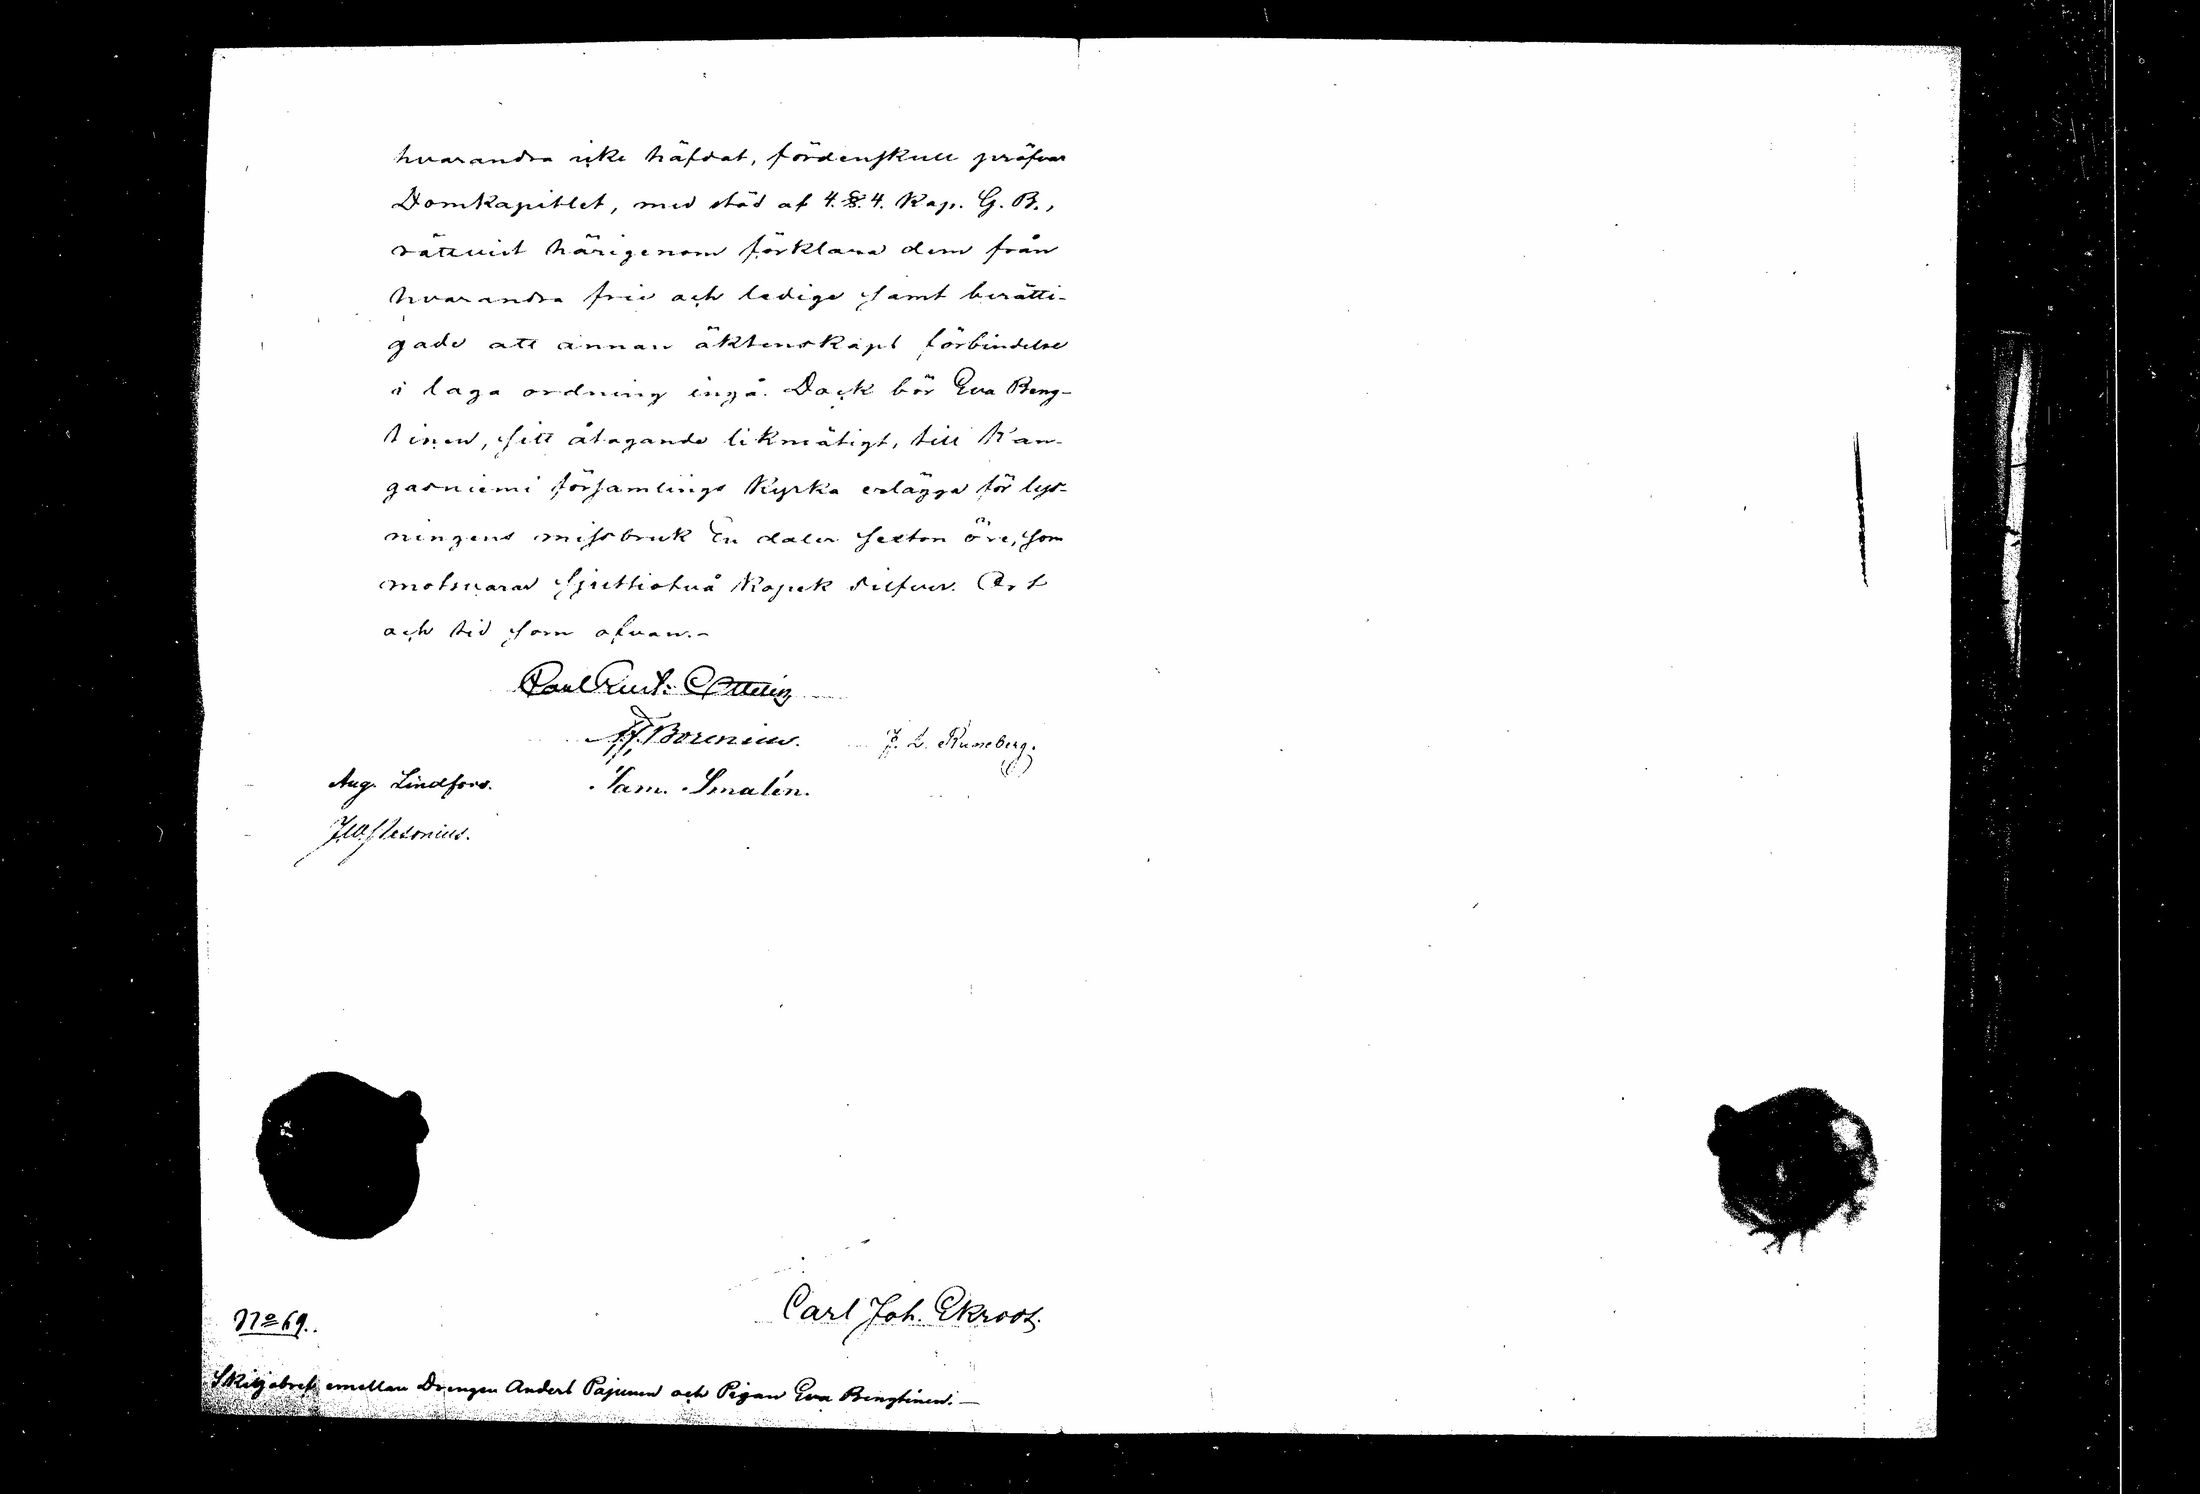 hvarandra icke häfdat, fördenskull pröfvar
Domkapitlet, med stöd af 4. §. 4. Kap. G. B.,
rättvist härigenom förklara dem från
hvarandra frie och ledige samt berätti-
gade att annan äktenskaps förbindelse
i laga ordning ingå. Dock bör Eva Beng-
tinen, sitt åtagande likmätigt, till Kan-
gasniemi församlings Kyrka erlägga för lys-
ningens missbruk En daler sexton öre, som
motsvarar sjuttiotvå Kopek silfver. Ort
och tid som ofvan.-
Carl Gust. Ottelin
Borenius. J. L. Runeberg.
Aug. Lindfors. Sam. Smalén.
Carl Joh. Ekroos.
No 69.
Skiljobref emellan Drengen Anders Pajunen och Pigan Eva Bengtinen.-